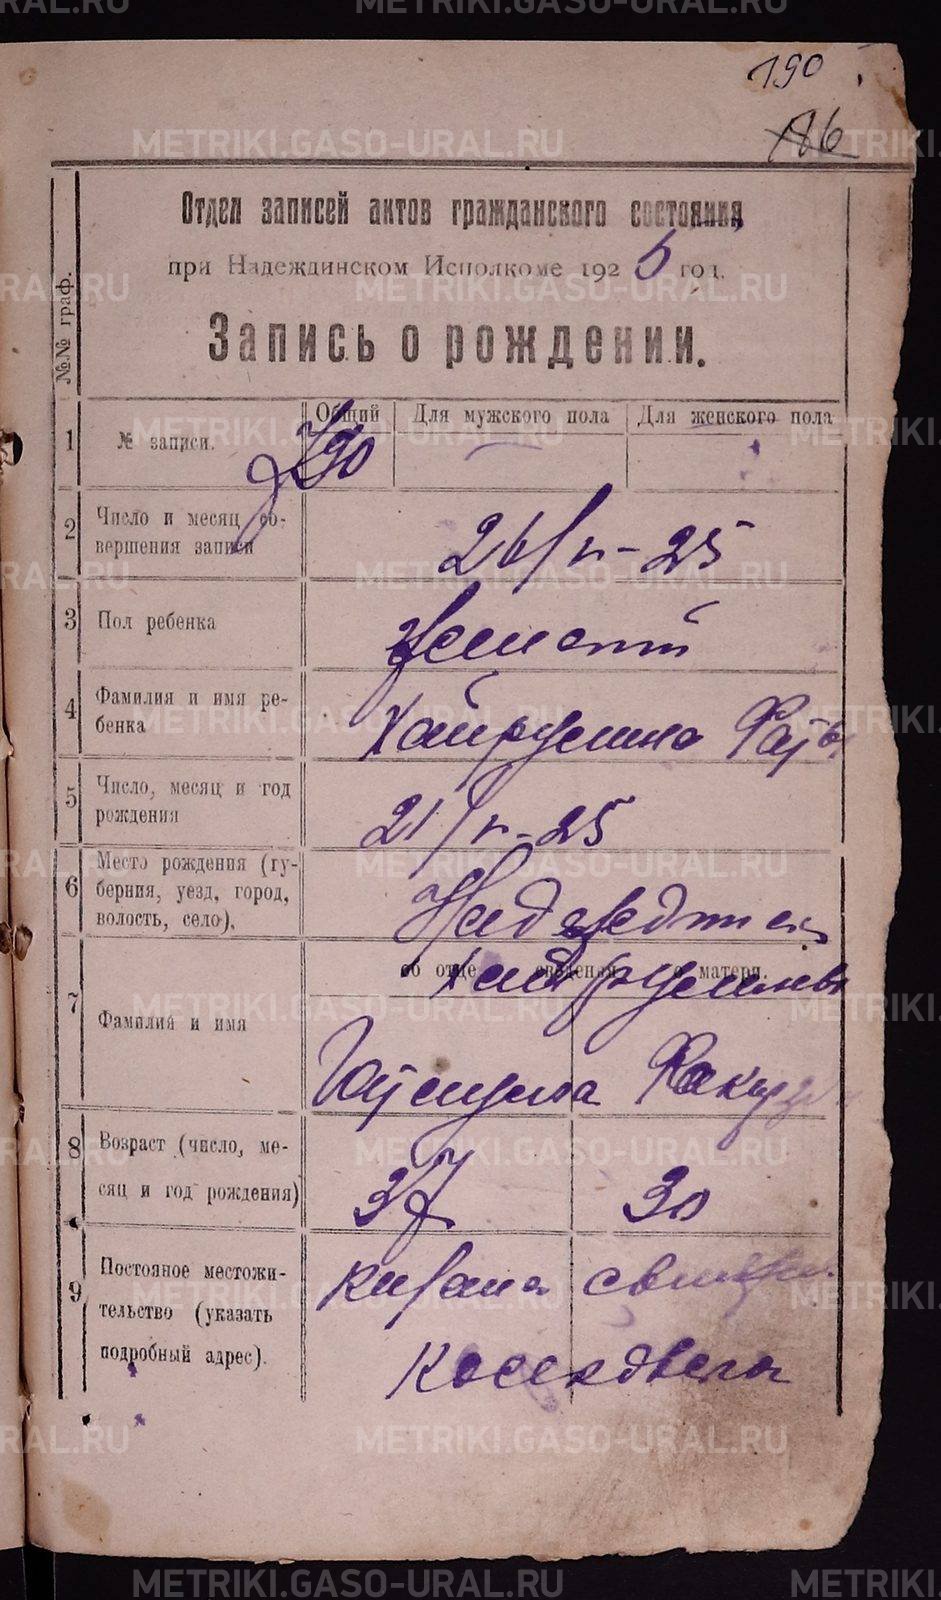 190
186
Отдел записей актов гражданского состояния
при Надеждинском Исполкоме 1925 год.
Запись о рождении.
№№ граф.
Общий Для мужского пола Для женского пола
1 № записи. 290
2 Число и месяц со-
вершения записи 26/V-25
3 Пол ребенка женский
4 Фамилия и имя ре-
бенка Хайруллина
5 Число, месяц и год
рождения 21/V-25
6 Место рождения (гу-
берния, уезд, город,
волость, село). Надеждинск
об отце сведения о матери.
7 Фамилия и имя
8 Возраст (число, ме-
сяц и год рождения) 37 30
9 Постояное местожи-
тельство (указать
подробный адрес).
METRIKI.GASO-URAL.RU